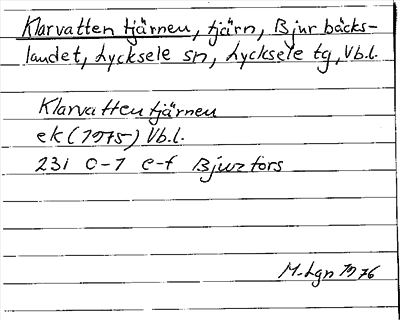 Klarvattentjärnen, tjärn, Bjurbäcks-
landet, Lycksele sn, Lycksele tg, Vb.l.
Klarvattentjärnen
ek (1975) Vb.l.
23i 0-1 e-f Bjurfors
M. Lgn 1976